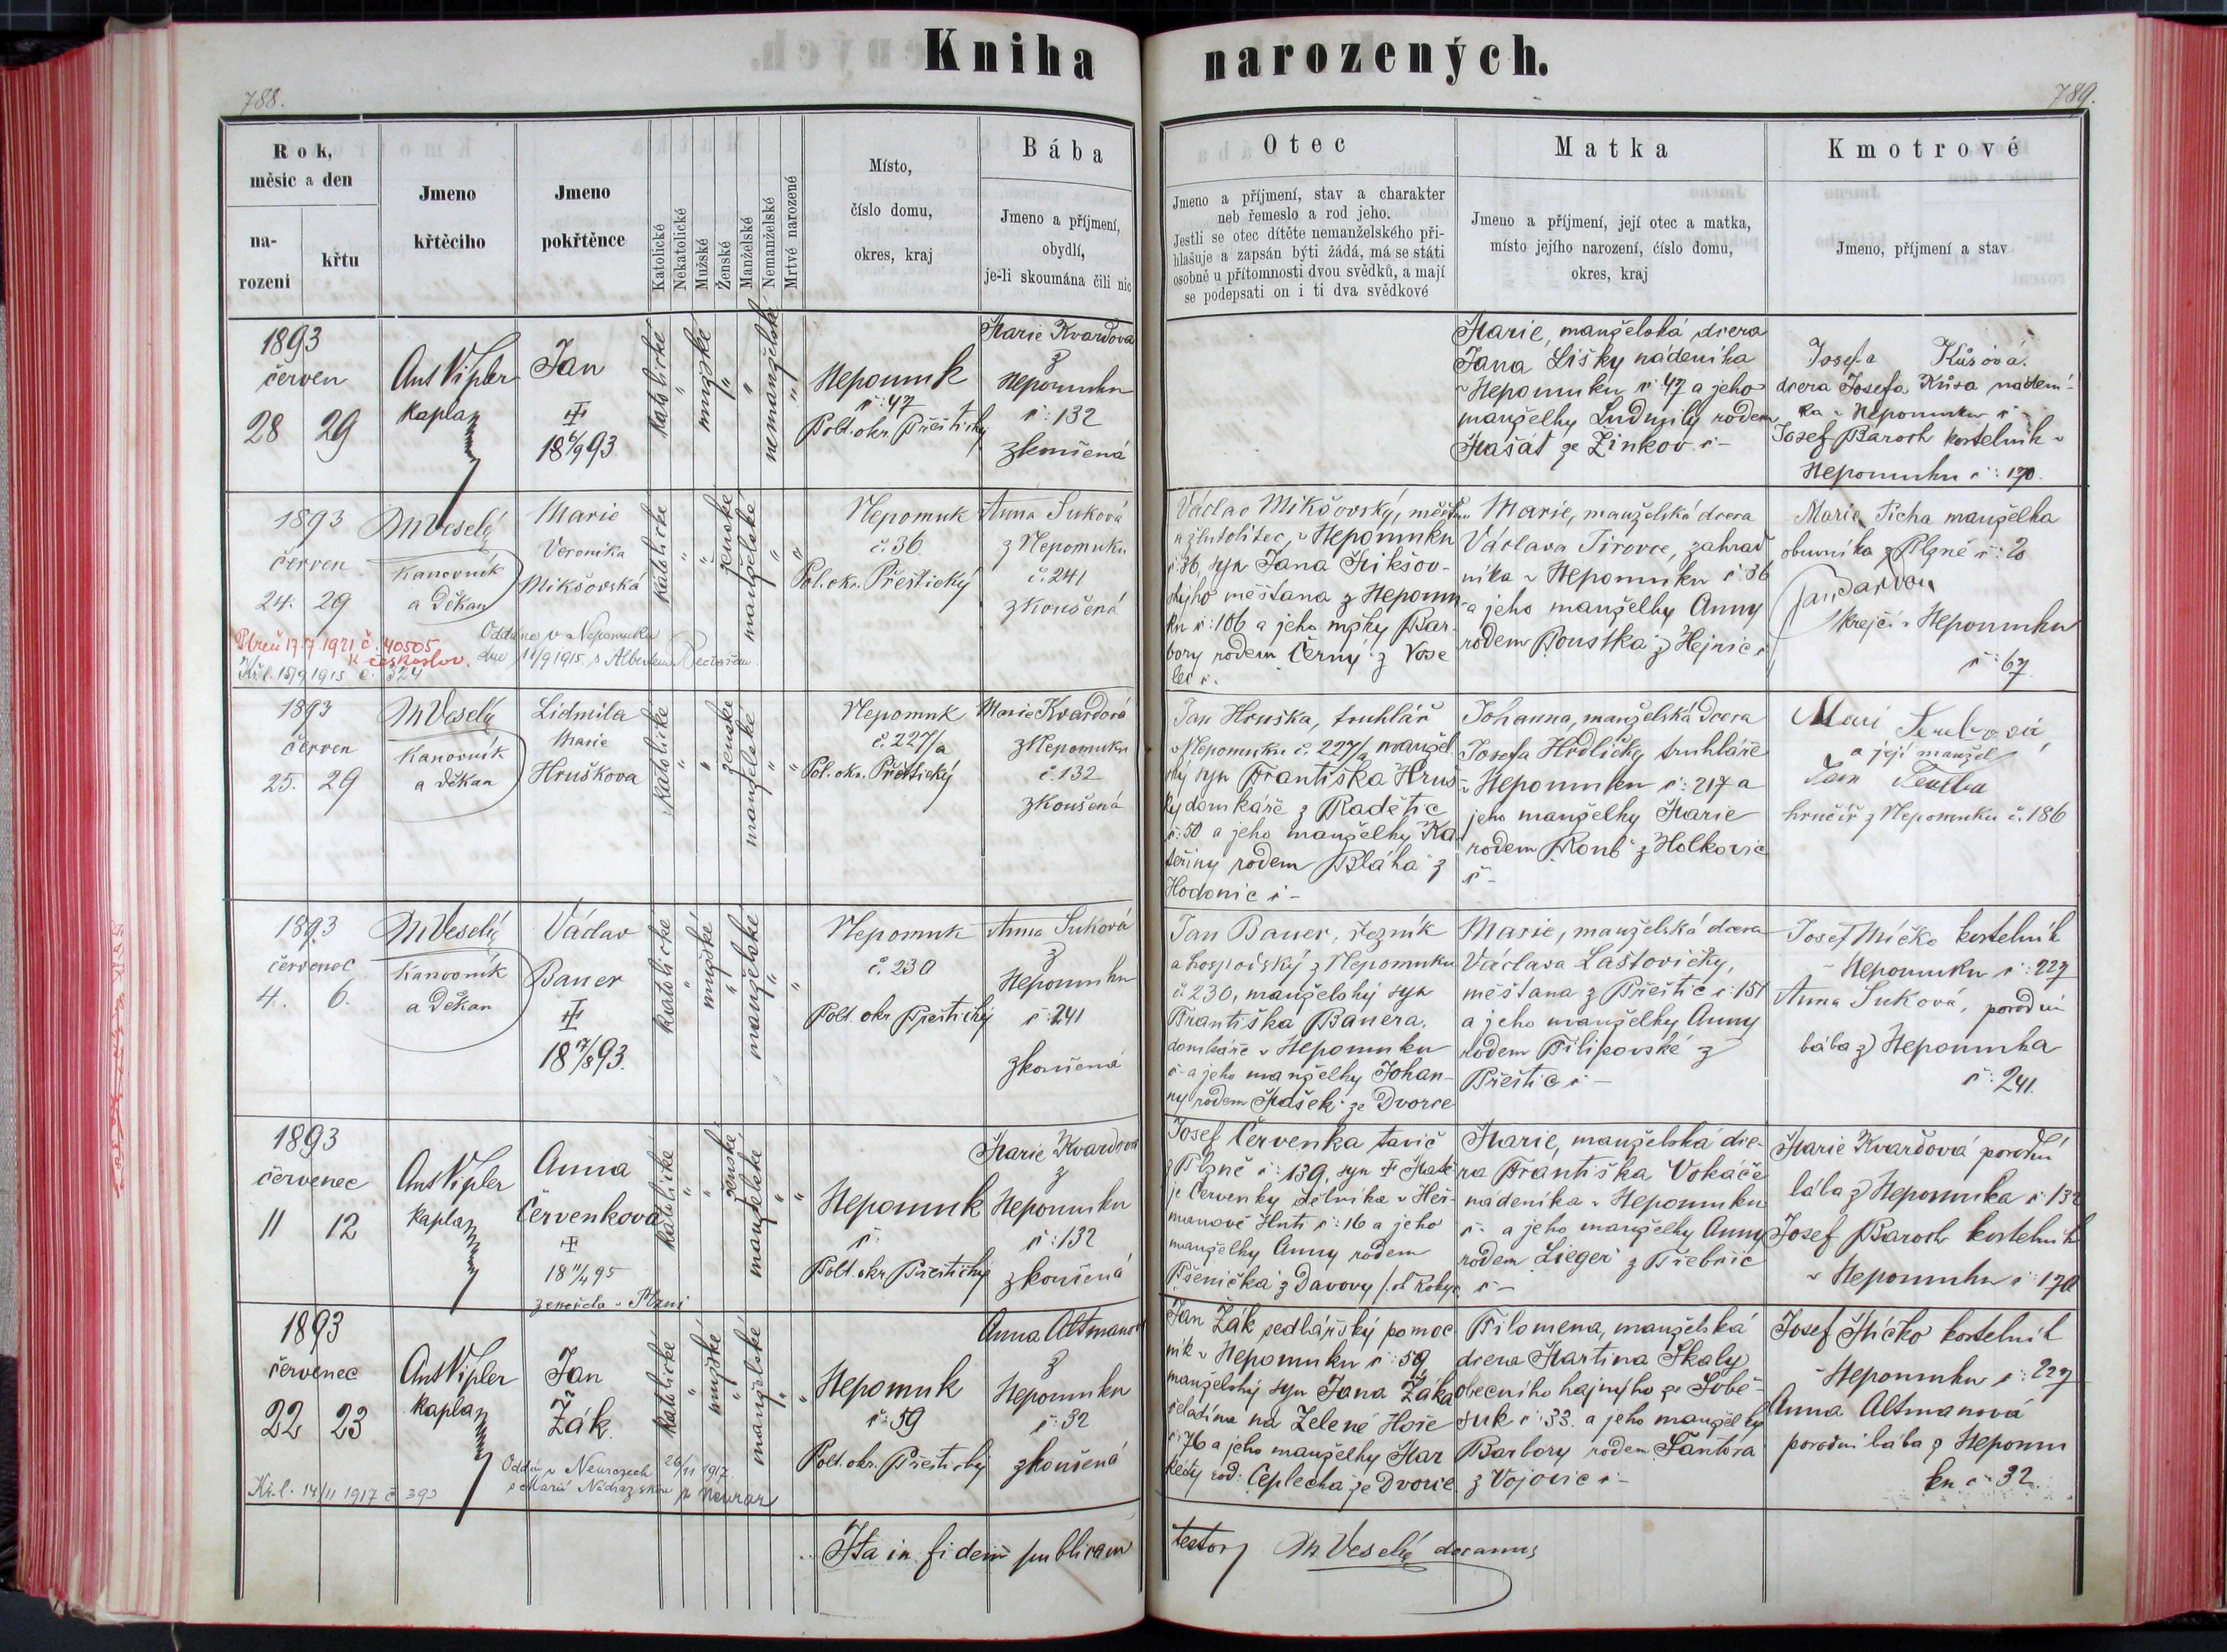 Kniha narozených.
788.
789.
Rok, měsíc a den
narození
křtu
Jmeno křtěcího
Jmeno pokřtěnce
Katolické
Nekatolické
Mužské
Ženské
Manželské
Nemanželské
Mrtvé narozené
Místo,
číslo domu,
okres, kraj
Bába
Jmeno a příjmení,
obydlí,
je-li skoumána čili nic
Otec
Jmeno a příjmení, stav a charakter
neb řemeslo a rod jeho.
Jestli se otec dítěte nemanželského při-
hlašuje a zapsán býti žádá, má se státi
osobně u přítomnosti dvou svědků, a mají
se podepsati on i ti dva svědkové
Matka
Jmeno a příjmení, její otec a matka,
místo jejího narození, číslo domu,
okres, kraj
Kmotrové
Jmeno, příjmení a stav
1893
červen
28 29
Ant Vipler
kaplan
Jan
katolické
mužské
nemanželské
Nepomuk
č: 47
Polt. okr. Přeštický
Marie Kvardova
z
Nepomuku
č: 132
zkoušená
Marie, manželská dcera
Jana Lišky nádeníka
v Nepomuku č: 47 a jeho
manželky Ludmily rodem
Mašát ze Žinkov č –
Josefa Kůsová.
dcera Josefa Kůsa nádení-
ka v Nepomuku č
Josef Baroch kostelník v
Nepomuku č: 170.
1893
červen
24. 29
M Veselý
Kanovník
a Děkan
Marie
Veronika
Mikšovská
katolické
ženské
manželské
Nepomuk
č. 36.
Pol. okr. Přeštický
Anna Suková
z Nepomuku
č. 241
zkoušená
Plzeň 17.7.1921 č. 40505
k českoslov.
Oddána v Nepomuku
dne 11/9 1915 s Albertem
Kř. l. 15/9 1915 č. 324
Václav Mikšovský, měšťan
a žlutolitec, v Nepomuku
č: 36, syn Jana Mikšov-
ského měšťana z Nepomu-
ku č: 106 a jeho mžky Bar-
bory rodem Černý z Vose
lec č.
Marie, manželská dcera
Václava Tirovce, zahrad
níka v Nepomuku č: 36
a jeho manželky Anny
rodem Poustka z Hejnic č
Marie Ticha manželka
obuvníka z Plzně č: 20
krejčí v Nepomuku
č: 67.
1893
červen
25. 29
M Veselý
Kanovník
a děkan
Lidmila
Marie
Hruškova
katolické
ženské
manželské
Nepomuk
č. 227/a
Pol. okr. Přeštický
Marie Kvardová
z Nepomuku
č. 132
zkoušená
Jan Hruška, truhlář
v Nepomuku č. 227/a manžel
ský syn Františka Hruš
ky domkáře z Radětic
č: 50 a jeho manželky Ka
teřiny rodem Bláha z
Hodonic č –
Johanna, manželská dcera
Josefa Hrdličky truhláře
v Nepomuku č: 217 a
jeho manželky Marie
rodem Roub z Holkovic
č –
a její manžel
Jan
hrnčíř z Nepomuku č. 186
1893
červenec
4. 6.
M Veselý
Kanovník
a Děkan
Václav
Bauer
18 17/8 93.
katolické
mužské
manželské
Nepomuk
č. 230
Polt. okr Přeštický
Anna Suková
z
Nepomuku
č: 241
zkoušená
Jan Bauer, řezník
a hospodský z Nepomuku
č. 230, manželský syn
Františka Bauera,
domkáře v Nepomuku
č – a jeho manželky Johan-
ny rodem Mašek ze Dvorce
Marie, manželská dcera
Václava Laštovičky,
měšťana z Přeštic č: 151
a jeho manželky Anny
rodem Filipovské z
Přeštic č –
Josef Míčko kostelník
v Nepomuku č: 227
Anna Suková, porodní
bába z Nepomuka
č: 241.
1893
červenec
11 12
Ant Vipler
kaplan
Anna
Červenková
18 11/4 95
zemřela v Plzni
katolické
ženské
manželské
Nepomuk
č.
Polt. okr Přeštický
Marie Kvardova
z
Nepomuku
č: 132
zkoušená
Josef Červenka tavič
z Plzně č: 139, syn Matě
je Červenky dělníka v Heř-
manově Huti č: 16 a jeho
manželky Anny rodem
Pšenička z Davovy
Marie, manželská dce-
ra Františka Vokáče
nádeníka v Nepomuku
č – a jeho manželky Anny
rodem Lieger z Třebčic
č –
Marie Kvardová porodní
bába z Nepomuka č: 132
Josef Baroch kostelník
v Nepomuku č: 170
1893
červenec
22 23
Ant Vipler
kaplan
Jan
Žák.
Oddán v Neurazech 26/11 1917
s Marií
Kř. l. 14/11 1917 č 393
katolické
mužské
manželské
Nepomuk
č: 59
Polt. okr. Přeštický
Anna Altmanová
z
Nepomuku
č: 32
zkoušená
Jan Žák sedlářský pomoc
ník v Nepomuku č: 59,
manželský syn Jana Žáka
čeledína na Zelené Hoře
č: 76 a jeho manželky Mar
kéty rod: Ceplecha ze Dvorce
Filomena, manželská
dcera Martina Skaly
obecního hajného ze Sobě-
suk č: 33. a jeho manželky
Barbory rodem Šantora
z Vojovic č –
Josef Míčko kostelník
v Nepomuku č: 227
Anna Altmanová
porodní bába z Nepomu
ku č: 32.
Ita in fidem publicam
testor M Veselý decanus